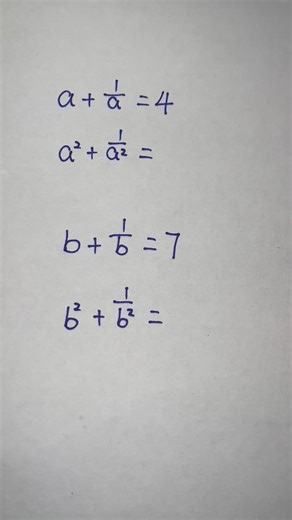 a + 1/a = 4
a² + 1/a² =
b + 1/b = 7
b² + 1/b² =